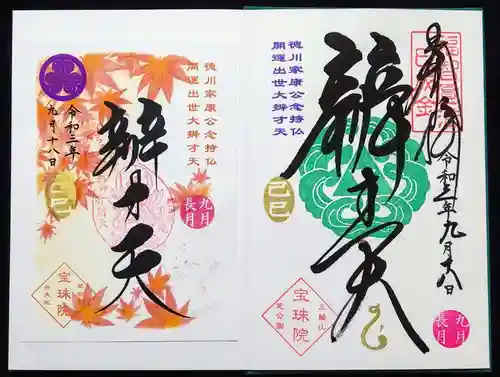 徳川家康公念持仏
開運出世大辨才天
令和三年
九月十八日
辨才天
己巳
九月
長月
芝公園
宝珠院
弁天池
徳川家康公念持仏
開運出世大辨才天
奉拝
令和三年九月十八日
辨才天
己巳
三縁山
宝珠院
芝公園
九月
長月